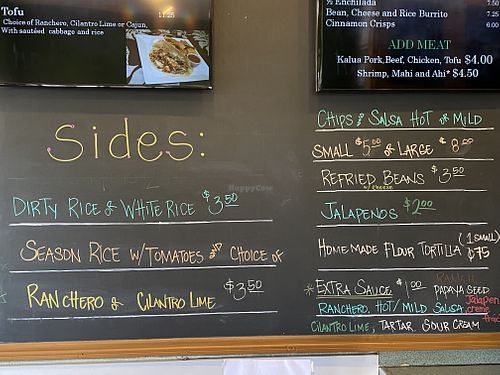 Tofu 11.25
Choice of Ranchero, Cilantro Lime or Cajun,
With sautéed cabbage and rice
½ Enchilada 7.50
Bean, Cheese and Rice Burrito 7.25
Cinnamon Crisps 6.00
ADD MEAT
Kalua Pork,Beef, Chicken, Tofu $4.00
Shrimp, Mahi and Ahi* $4.50
Sides:
DIRTY RICE or WHITE RICE $3.50
SEASON RICE W/TOMATOES CHOICE OF
RANCHERO or CILANTRO LIME $3.50
CHIPS & SALSA HOT or MILD
SMALL $5.00 or LARGE $8.00
REFRIED BEANS $3.50
w/ cheese
JALAPENOS $2.00
HOMEMADE FLOUR TORTILLA (1 SMALL) $.75
*EXTRA SAUCE $1.00 PAPAYA SEED
RANCHERO, HOT/MILD SALSA, Jalapen
creme
CILANTRO LIME, TARTAR, SOUR CREAM
HappyCow